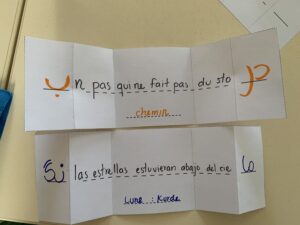 n pas qui ne fait pas du sto
chemin
las estrellas estuvieran abajo del cie
Lune : Kurde